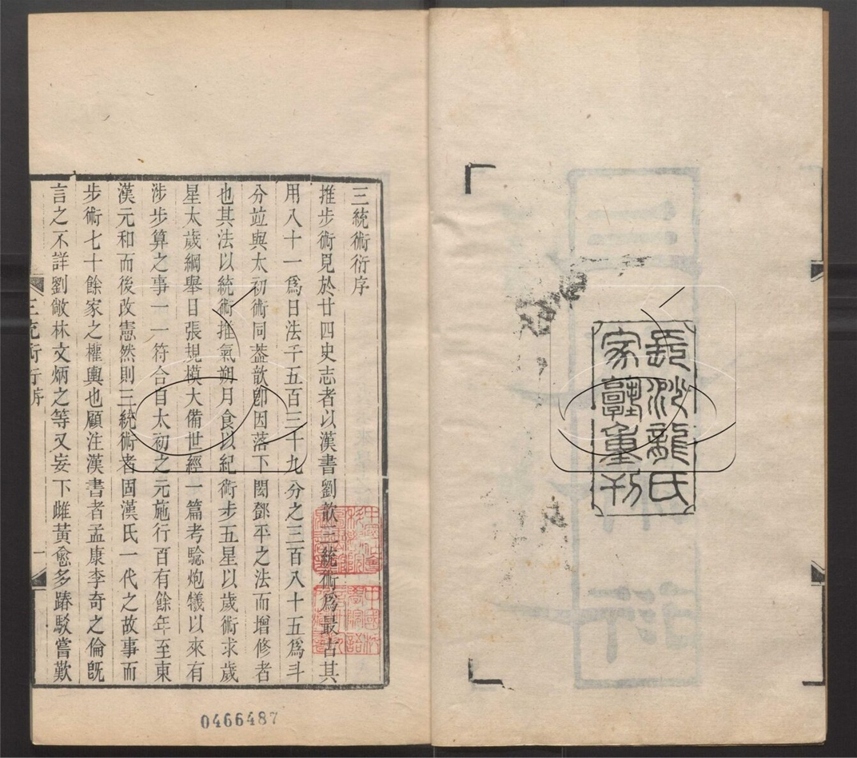 長沙龍氏
家塾重刊
三統術衍序
推步術見於廿四史志者以漢書劉歆三統術為最古其
用八十一爲日法千五百三十九分之三百八十五爲斗
分竝與太初術同葢歆卽因落下閎鄧平之法而增修者
也其法以統術推氣朔月食以紀術步五星以歲術求歲
星太歲綱舉目張規模大備世經一篇考驗炮犧以來有
涉步算之事一一符合自太初之元施行百有餘年至東
漢元和而後改憲然則三統術者固漢氏一代之故事而
步術七十餘家之權輿也顧注漢書者孟康李奇之倫旣
言之不詳劉敞林文炳之等又妄下雌黃愈多踳駁嘗歎
三統術衍序
一
0466487